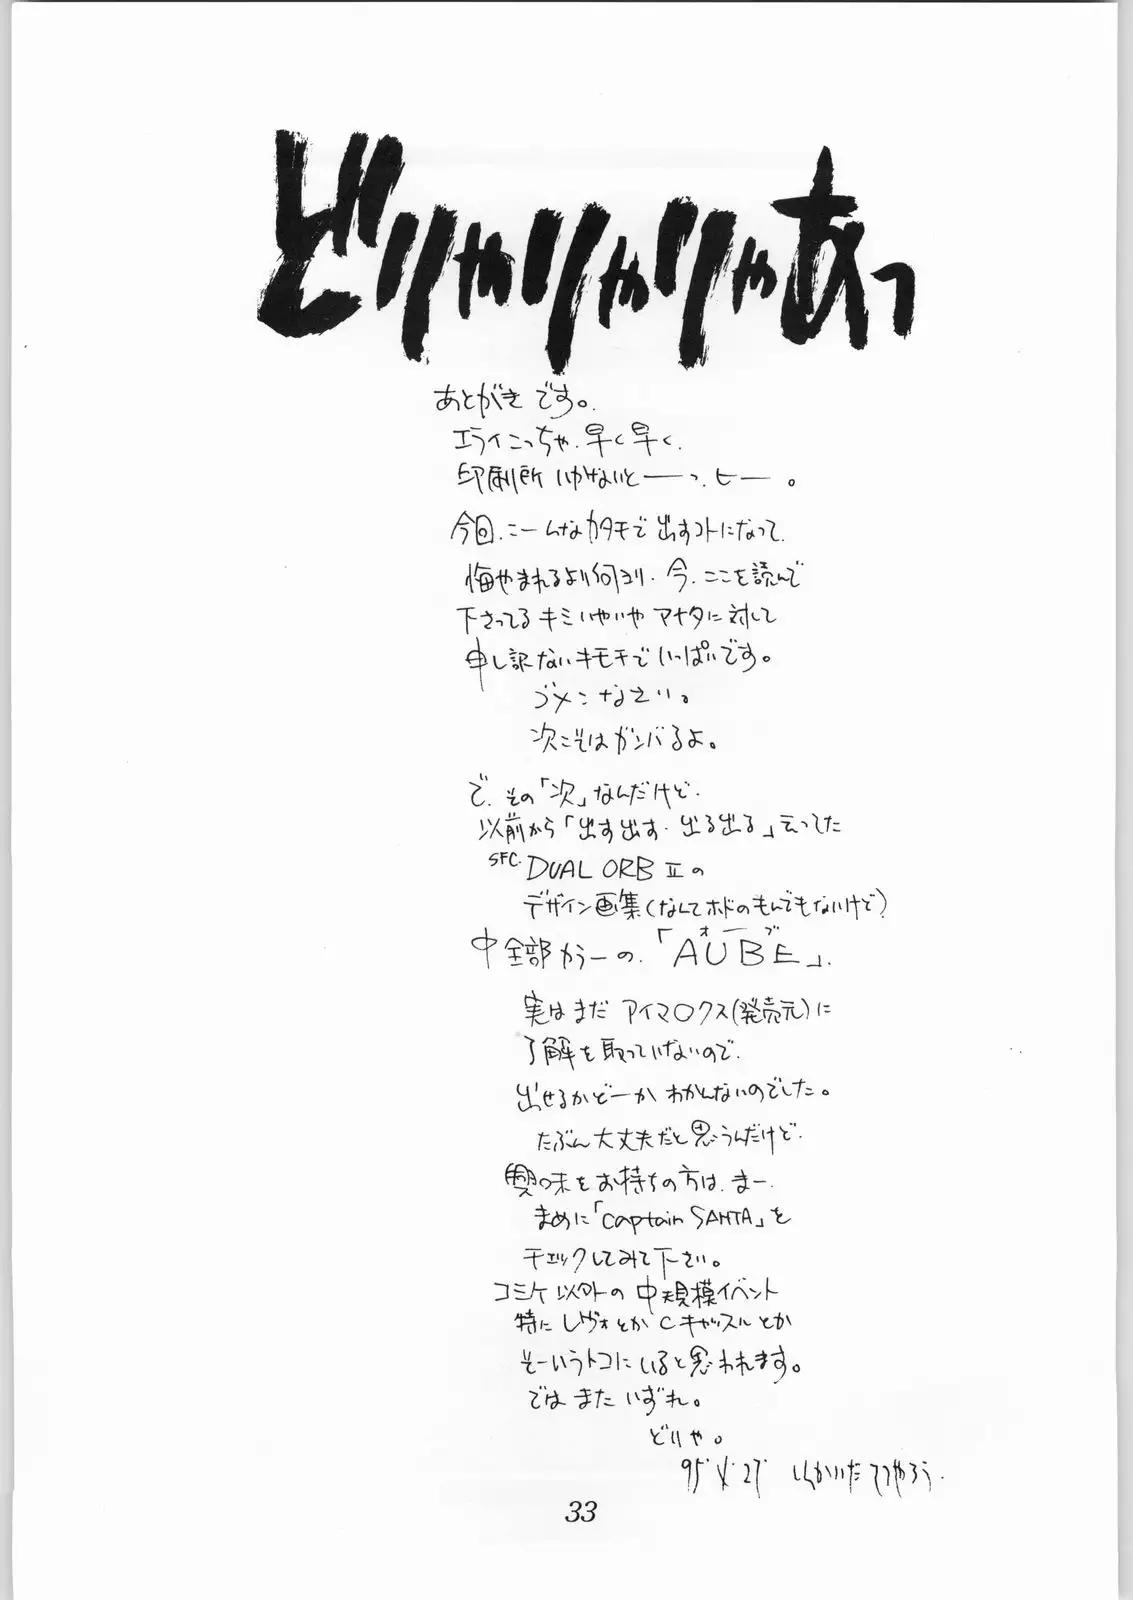 どりゃりゃりゃあっ
あとがきです。
エライこっちゃ、早く早く、
印刷所いかないと――っ、ヒ―。
今回、こーんなカタチで出すコトになって、
悔やまれるより何より、今、ここを読んで
下さってるキミいやいやアナタに対して
申し訳ないキモチでいっぱいです。
ゴメンなさい。
次こそはガンバるよ。
で、その「次」なんだけど、
以前から「出す出す・出る出る」云ってた
SFC. DUAL ORB Ⅱの
デザイン画集(なんてホドのもんでもないけど)
中全部カラーの、「AUBE」、
オーブ
実はまだアイマ○クス(発売元)に
了解を取っていないので、
出せるかどーかわかんないのでした。
たぶん大丈夫だと思うんだけど、
興味をお持ちの方は、まー、
まめに「Captain SANTA」を
チェックしてみて下さい。
コミケ以外の中規模イベント
特にレヴォとかCキャッスルとか
そーいうトコにいると思われます。
ではまたいずれ。
どりゃ。
95
33